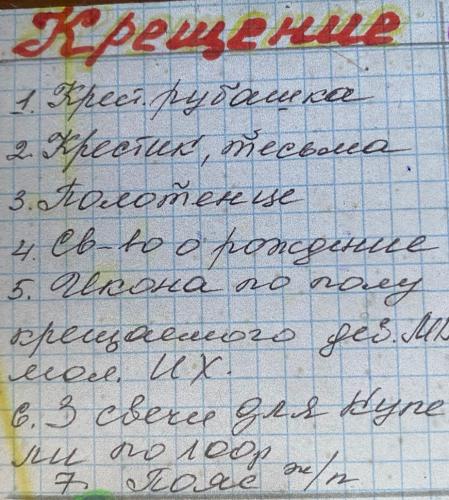 Крещение
1. Крест. рубашка
2. Крестик, тесьма
3. Полотенце
4. Св-во о рождение
5. Икона по полу
крещаемого дев. МБ
мол. ИХ.
6. 3 свечи для Купе
ли по 100р
7. Пояс ж/п